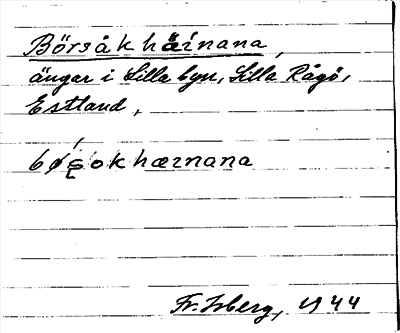 Börsåkhäinana,
ängar i Lilla byn, Lilla Rågö,
Estland,
bø̀s̨okhæinana
Fr. Isberg, 1944